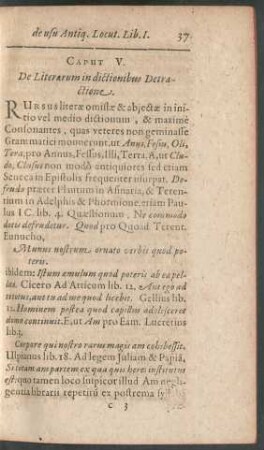 de usu Antiq. Locut. Lib. I. 37
CAPUT V.
De Literarum in dictionibus Detra-
ctione.
RURsus literæ omissæ & abjectæ in ini-
tio vel medio dictionum, & maxime
Consonantes, quas veteres non geminasse
Grammatici monuerunt, ut Anus, Fesus, Oli,
Tera, pro Annus, Fessus, Illi, Terra. A, ut Clu-
do, Clusus non modò antiquiores sed etiam
Seneca in Epistolis frequenter usurpat. De-
frudo præter Plautum in Asinaria, & Teren-
tium in Adelphis & Phormione, etiam Pau-
lus IC. lib. 4. Quæstionum, Ne commoda
debitis defrudetur. Quod pro Quoad Terent.
Eunucho,
Munus nostrum ornato verbis quod po-
teris.
ibidem: Istum æmulum quod poteris ab ea pel-
lito. Cicero Ad Atticum lib. 12. Aut ego ad
aut tu ad me quod licebit. Gellius lib.
Hominem postea quod capillum adolesceret
dino continuit. E, ut Am pro Eam. Lucretius
lib.
Corpore qui nostro rarus magis am cohibessit.
Ulpianus lib. 18. Ad legem Juliam & Papiā,
Si totam am partem ex qua quis heres institutus
est: quo tamen loco suspicor illud Am negli-
gentia librarii repetitū ex postrema sy
C 3